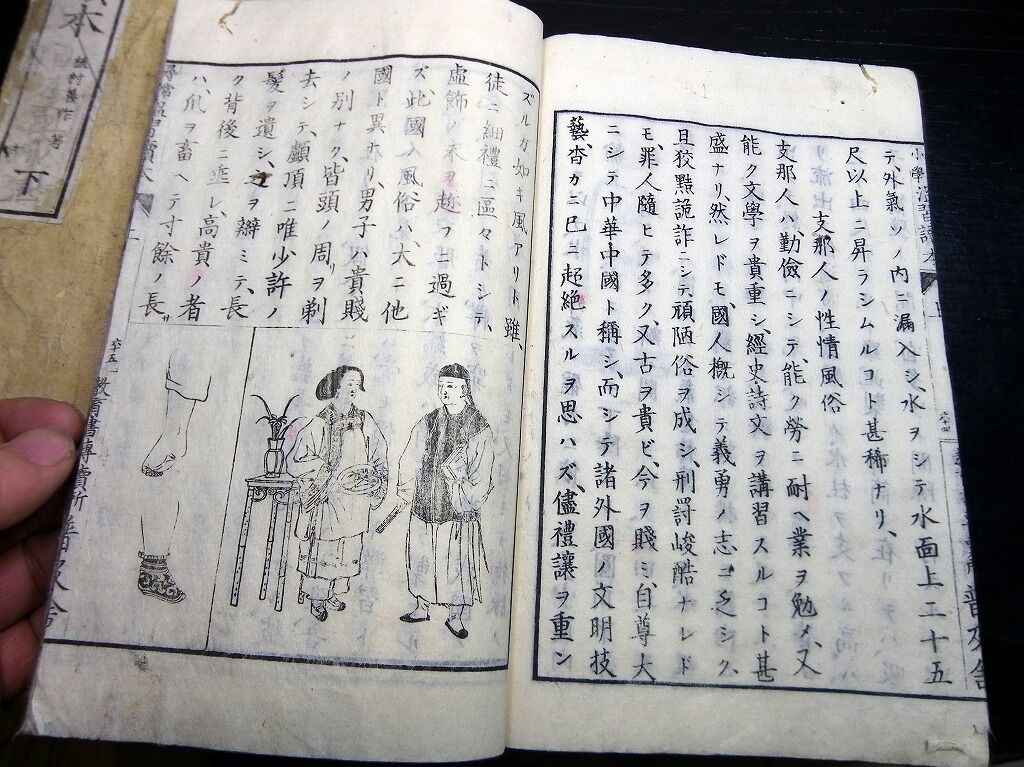 テ、外氣ソノ内ニ漏入シ、水ヲシテ水面上二十五
尺以上ニ昇ラシムルコト甚稀ナリ、
支那人ノ性情風俗
支那人ハ、勤儉ニシテ、能ク勞ニ耐ヘ業ヲ勉メ、又
能ク文學ヲ貴重シ、經史詩文ヲ講習スルコト甚
盛ナリ、然レドモ、國人概シテ義勇ノ志ニ乏シク、
且狡黠詭詐ニシテ、頑陋俗ヲ成シ、刑罰峻酷ナレド
モ、罪人隨ヒテ多ク、又古ヲ貴ビ、今ヲ賤ミ、自尊大
ニシテ、中華中國ト稱シ、而シテ諸外國ノ文明技
藝、杳カニ已ニ超絶スルヲ思ハズ、儘禮讓ヲ重ン
ズルガ如キ風アリト雖、
徒ニ細禮ニ區々トシテ、
虚飾ノ末ヲ趁フニ過ギ
ズ、此國人風俗ハ、大ニ他
國ト異ナリ、男子ハ貴賤
ノ別ナク、皆頭ノ周リヲ剃
去シテ、顱頂ニ唯少許ノ
髮ヲ遺シ、之ヲ辮ミテ、長
ク背後ニ垂レ、高貴ノ者
ハ、爪ヲ畜ヘテ寸餘ノ長
尋常温習讀本
二
六十五
六十四
上
普及舍
本
作著
下